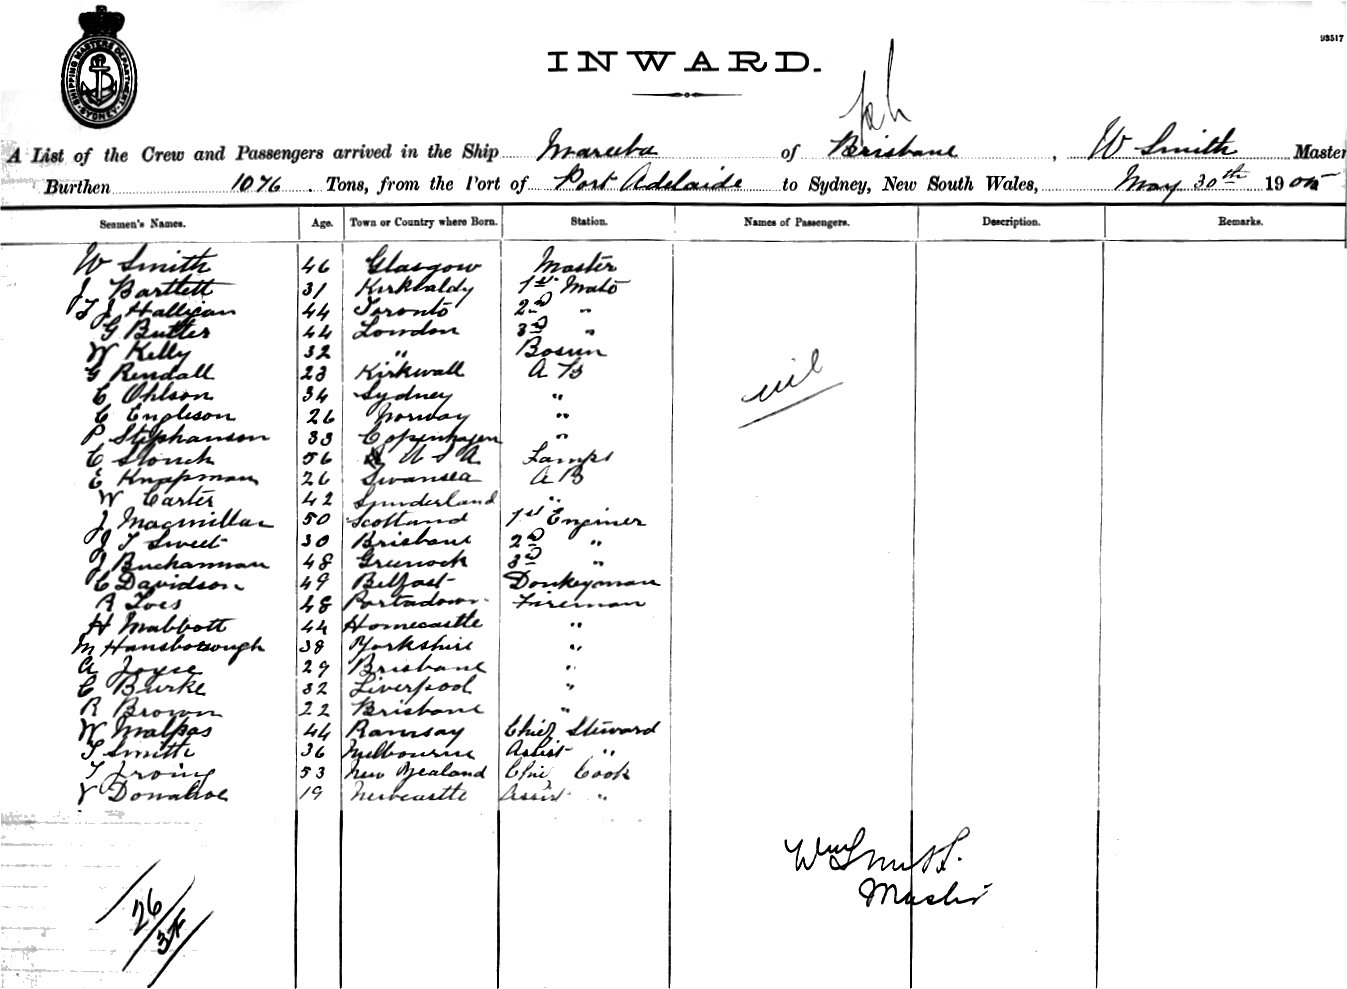 93517
SHIPPING MASTERS DEPARTMENT
SYDNEY
INWARD.
A List of the Crew and Passengers arrived in the Ship Mareeba of Brisbane, W Smith Master
Burthen 1076. Tons, from the Port of Port Adelaide to Sydney, New South Wales, May 30th 1905
Seamen's Names. Age. Town or Country where Born. Station. Names of Passengers. Description. Remarks.
W Smith 46 Glasgow Master
J Bartlett 31 Kirkcaldy 1st Mate
T J Halligan 44 Toronto 2nd "
G Butler 44 London 3rd "
W Kelly 32 " Bosun
G Rendall 23 Kirkwall A B
C Ohlson 34 Sydney "
C Engleson 26 Norway "
nil
P Stephanson 33 Copenhagen "
C Stouck 56 U S A Lamps
E Knapman 26 Swansea A B
W Carter 42 Sunderland "
J Macmillan 50 Scotland 1st Enginer
J T Sweet 30 Brisbane 2nd "
J Buchannan 48 Greenock 3rd "
C Davidson 49 Belfast Donkeyman
R 48 Portadown Fireman
H Mabbott 44 Homecastle "
M Hansborough 38 Yorkshire "
A Joyce 29 Brisbane "
C Burke 32 Liverpool "
R Brown 22 Brisbane "
W Malpas 44 Ramsay Chief Steward
T Smith 36 Melbourne Assist "
T Irving 53 New Zealand Chie Cook
Y Donahoe 19 Newcastle Assist "
Wm Smith.
Master
26